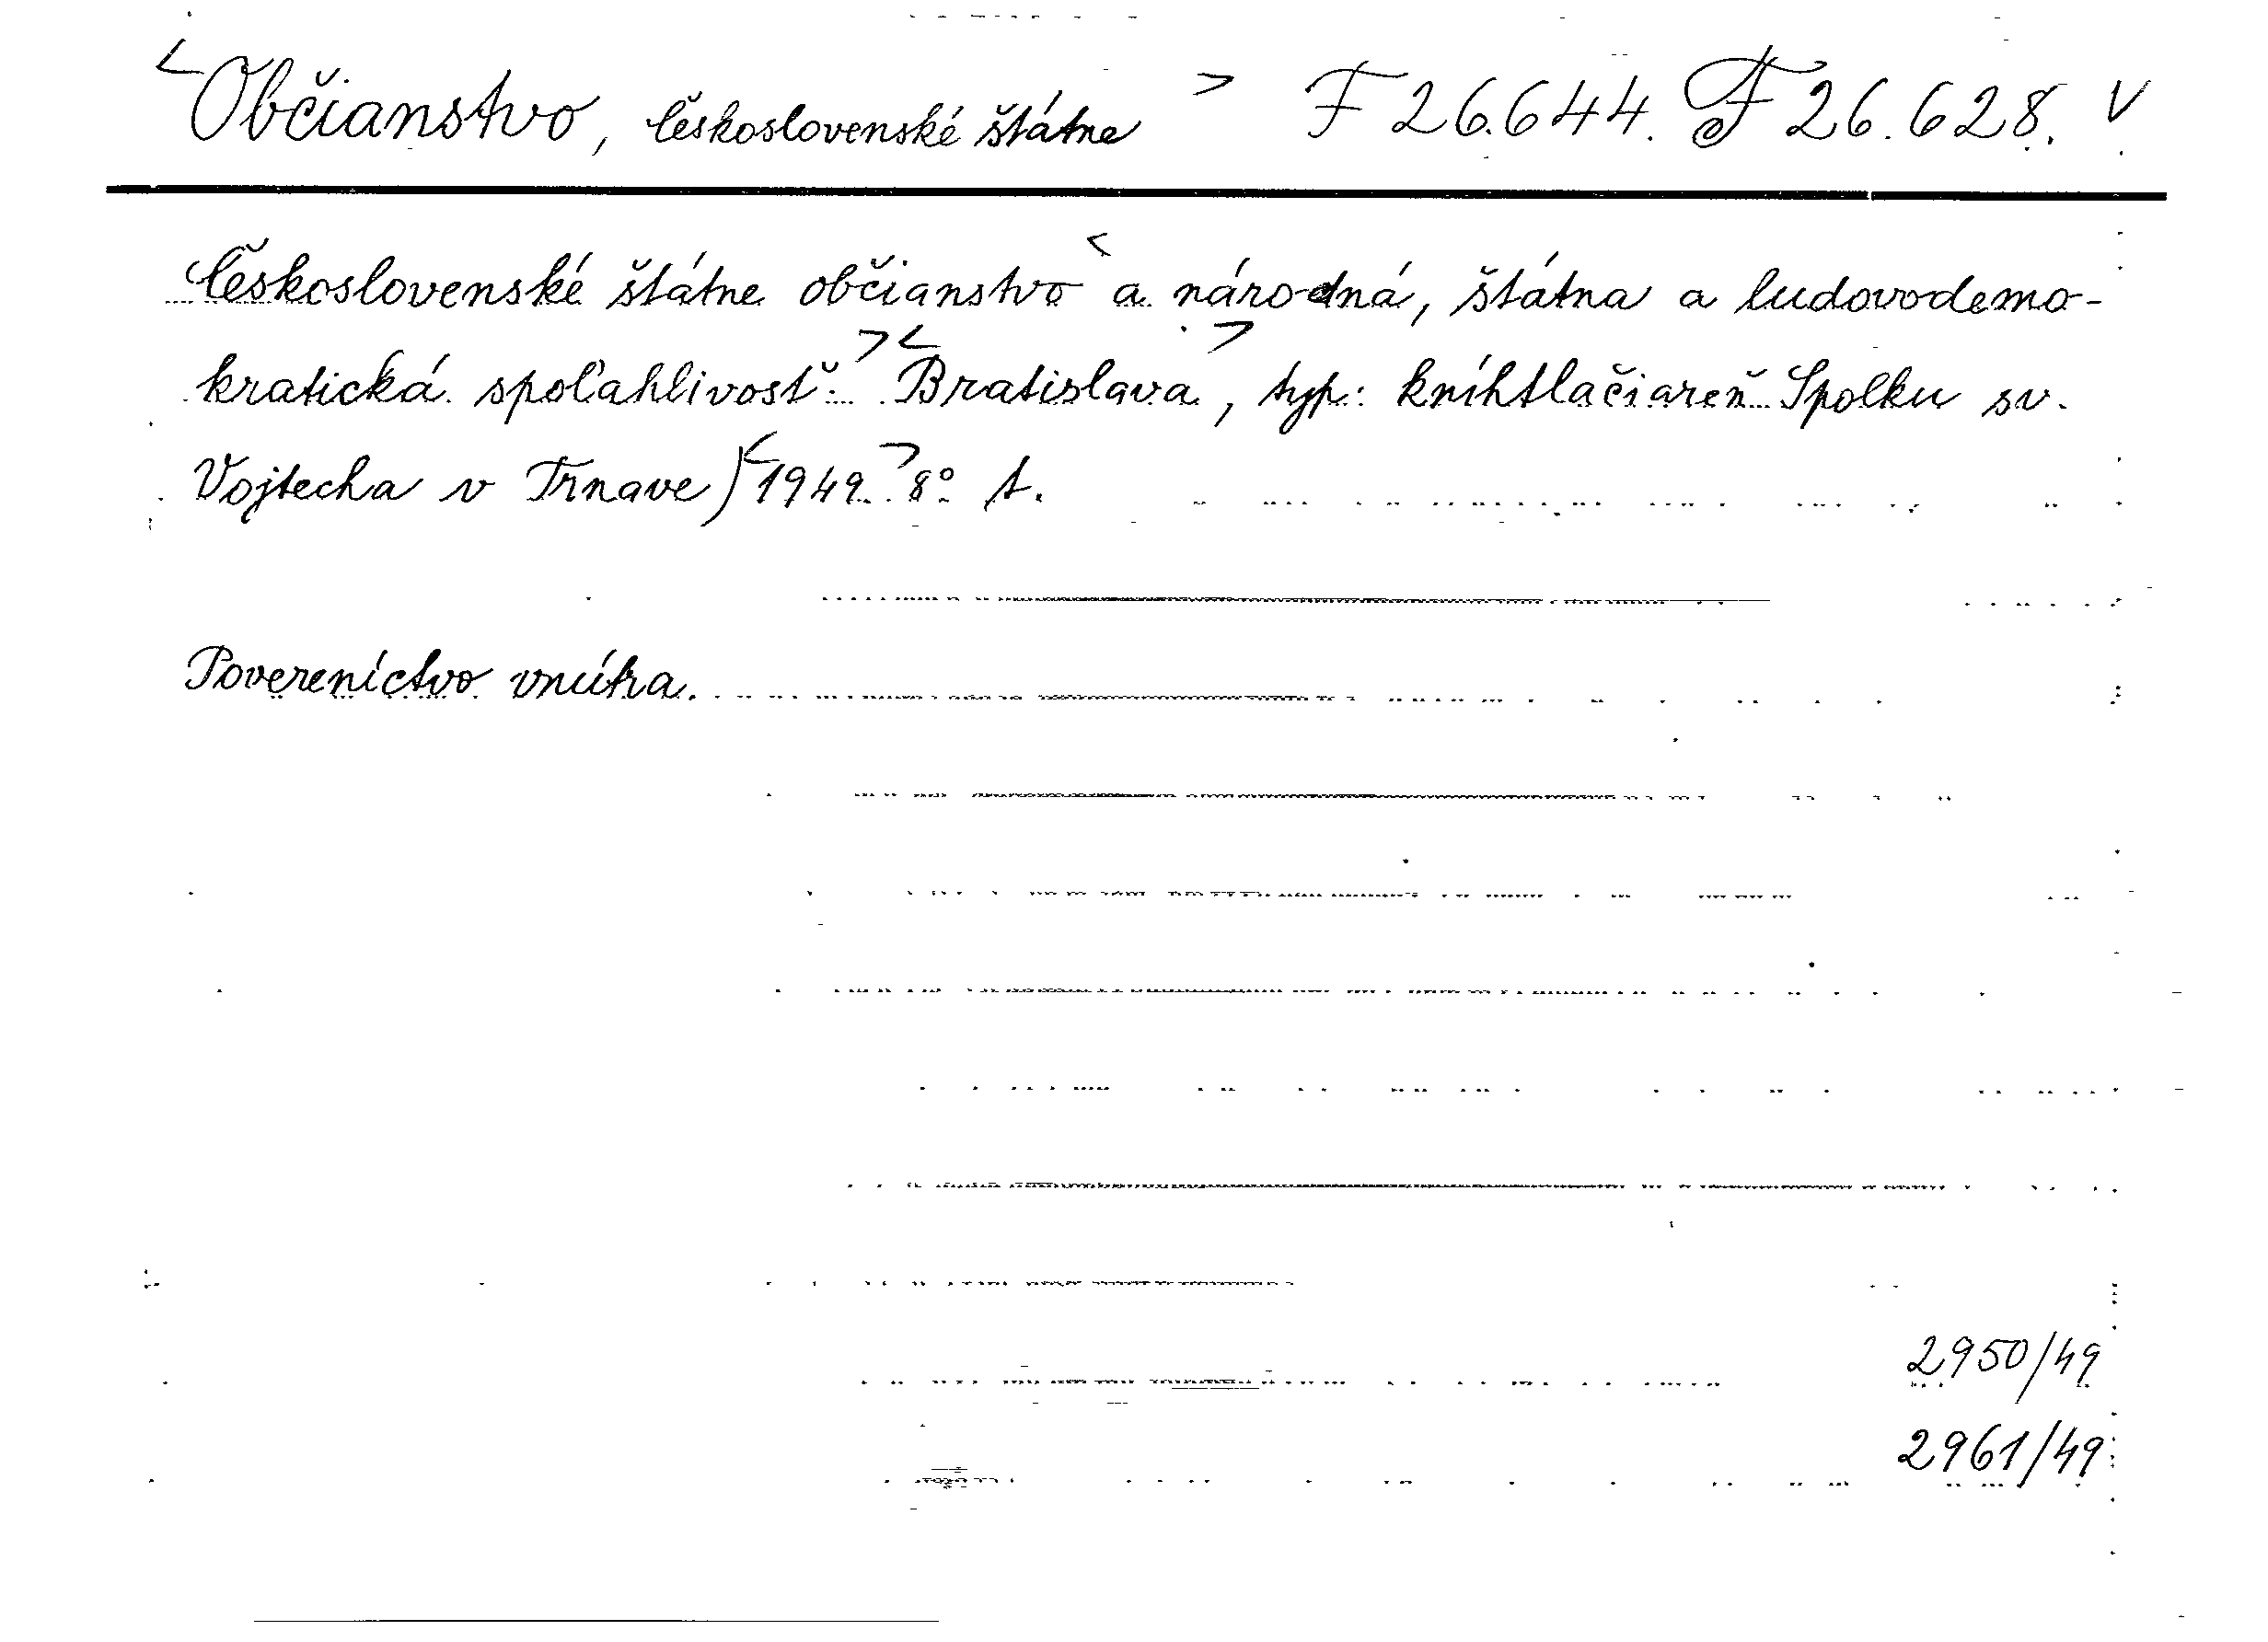 <Občianstvo, československé štátne> F 26.644. F 26.628. V
Československé štátne občianstvo < a národná, štátna a ludovodemo-
kratická spoľahlivosť. > < Bratislava >, typ: kníhtlačiareň Spolku sv.
Vojtecha v Trnave) < 1949. > 8° t.
Povereníctvo vnútra.
2950/49
2961/49